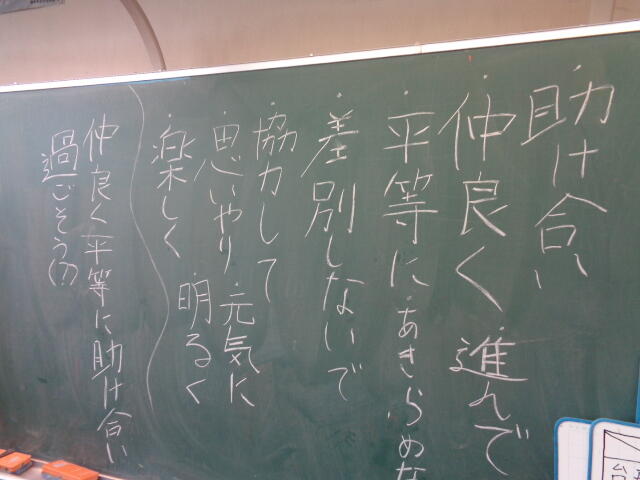 ・助け合い
・仲良く ・進んで
・平等に ・あきらめな
・差別しないで
・協力して
・思いやり ・元気に
・楽しく ・明るく
仲良く平等に助け合い
過ごそう(?)